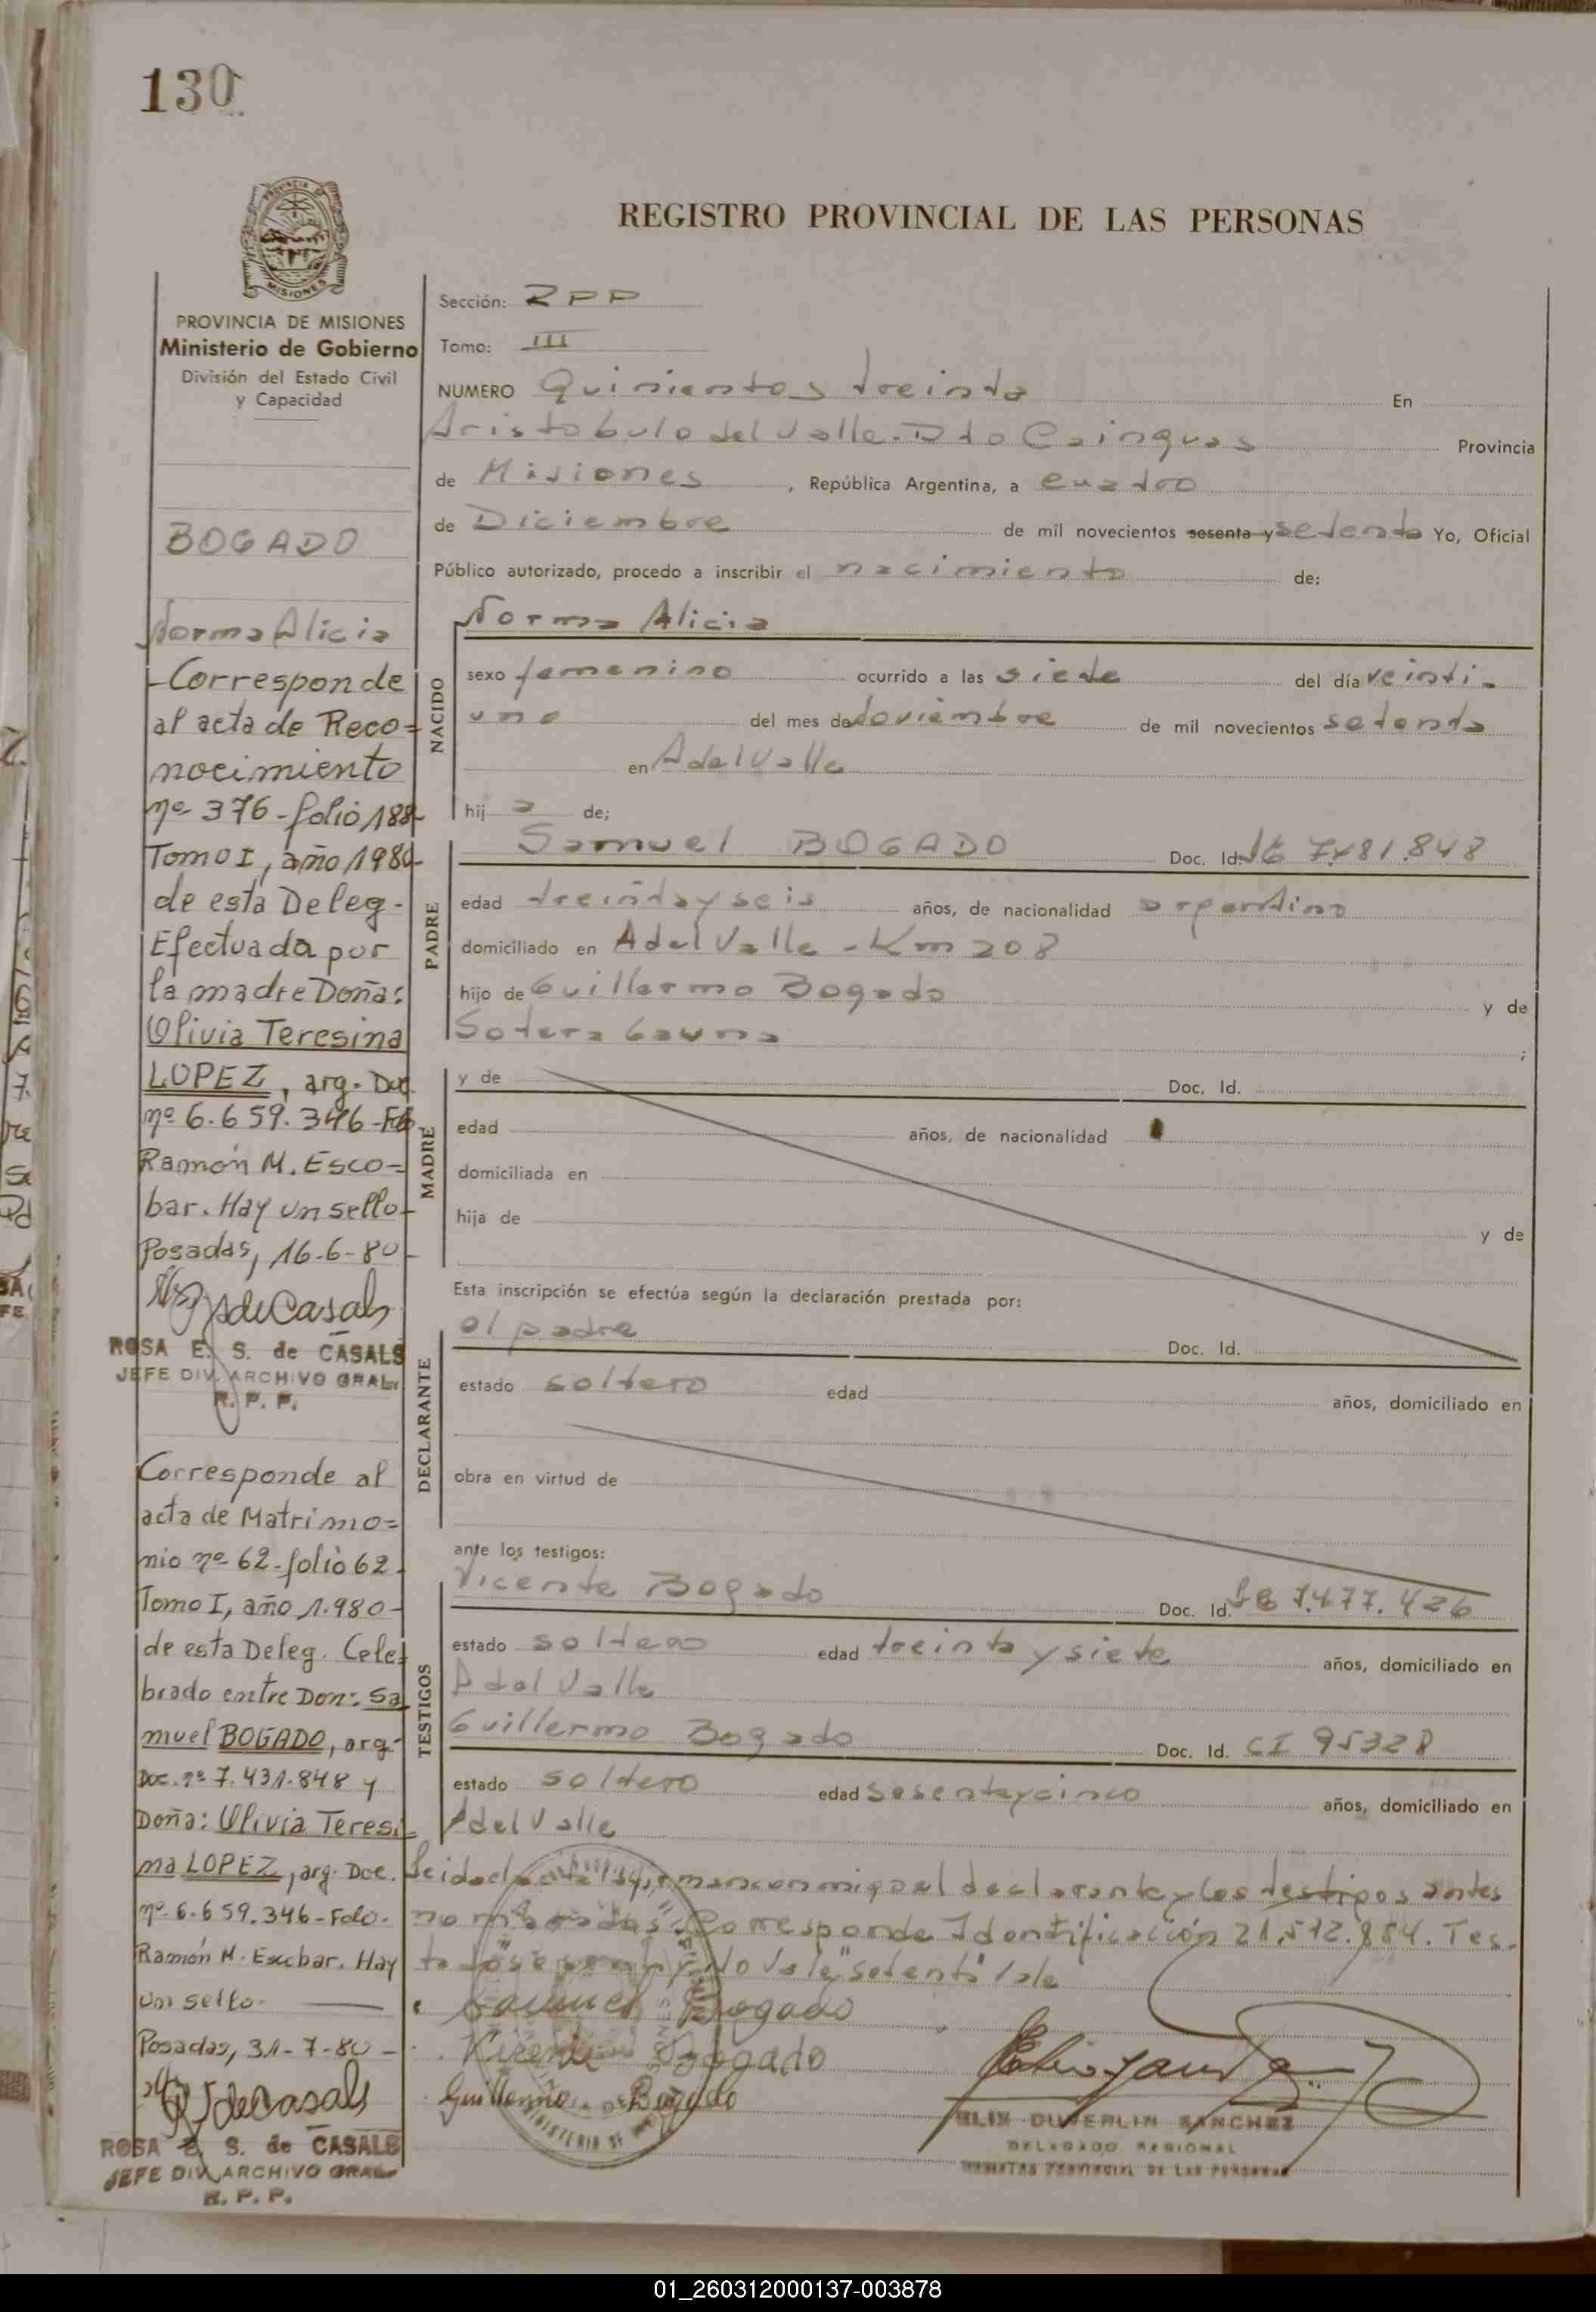 130
REGISTRO PROVINCIAL DE LAS PERSONAS
PROVINCIA DE MISIONES
Ministerio de Gobierno
División del Estado Civil
y Capacidad
BOGADO
Norma Alicia
Corresponde
al acta de Reco=
nocimiento
nº 376-folio 188-
Tomo I, año 1980-
de esta Deleg-
Efectuada por
la madre Doña:
Olivia Teresina
LOPEZ, arg. Doc.
nº 6.659.346-Fdo
Ramón M. Esco=
bar. Hay un sello-
Posadas, 16-6-80-
ROSA E. S. de CASALS
JEFE DIV. ARCHIVO GRAL.
R. P. P.
Corresponde al
acta de Matrimo=
nio nº 62-folio 62-
Tomo I, año 1.980-
de esta Deleg. Cele-
brado entre Don: Sa
muel BOGADO, arg-
Doc. nº 7.431.848 y
Doña: Olivia Teresi-
na LOPEZ, arg. Doc.
nº 6.659.346-Fdo.
Ramón M. Escobar. Hay
un sello.
Posadas, 31-7-80-
ROSA E. S. de CASALS
JEFE DIV. ARCHIVO GRAL.
R. P. P.
Sección: RPP
Tomo: III
NUMERO Quinientos treinta En
Aristobulo del Valle. Dto Cainguas Provincia
de Misiones, República Argentina, a cuatro
de Diciembre de mil novecientos sesenta y setenta Yo, Oficial
Público autorizado, procedo a inscribir el nacimiento de:
NACIDO
Norma Alicia
sexo femenino ocurrido a las siete del día veinti-
uno del mes de Noviembre de mil novecientos setenta
en A del Valle
hij a de;
PADRE
Samuel BOGADO Doc. Id.
edad treinta y seis años, de nacionalidad argentino
domiciliado en A del Valle - Km 208
hijo de Guillermo Bogado y de
Sotera Gauna ;
MADRE
y de Doc. Id.
edad años, de nacionalidad
domiciliada en
hija de y de
Esta inscripción se efectúa según la declaración prestada por:
DECLARANTE
el padre Doc. Id.
estado soltero edad años, domiciliado en
obra en virtud de
ante los testigos:
TESTIGOS
Vicente Bogado Doc. Id. 7.477.426
estado soltero edad treinta y siete años, domiciliado en
A del Valle
Guillermo Bogado Doc. Id. CI 95328
estado soltero edad sesenta y cinco años, domiciliado en
A del Valle
Leida el acta la firman conmigo el declarante y los testigos antes
nombrados. Corresponde Identificación 21.572.884. Tes-
tado "sesenta y" No Vale "setenta" Vale
Samuel Bogado
Vicente Bogado
Guillermo Bogado
ELIX DUVERLIN SANCHEZ
DELEGADO REGIONAL
REGISTRO PROVINCIAL DE LAS PERSONAS
01_260312000137-003878